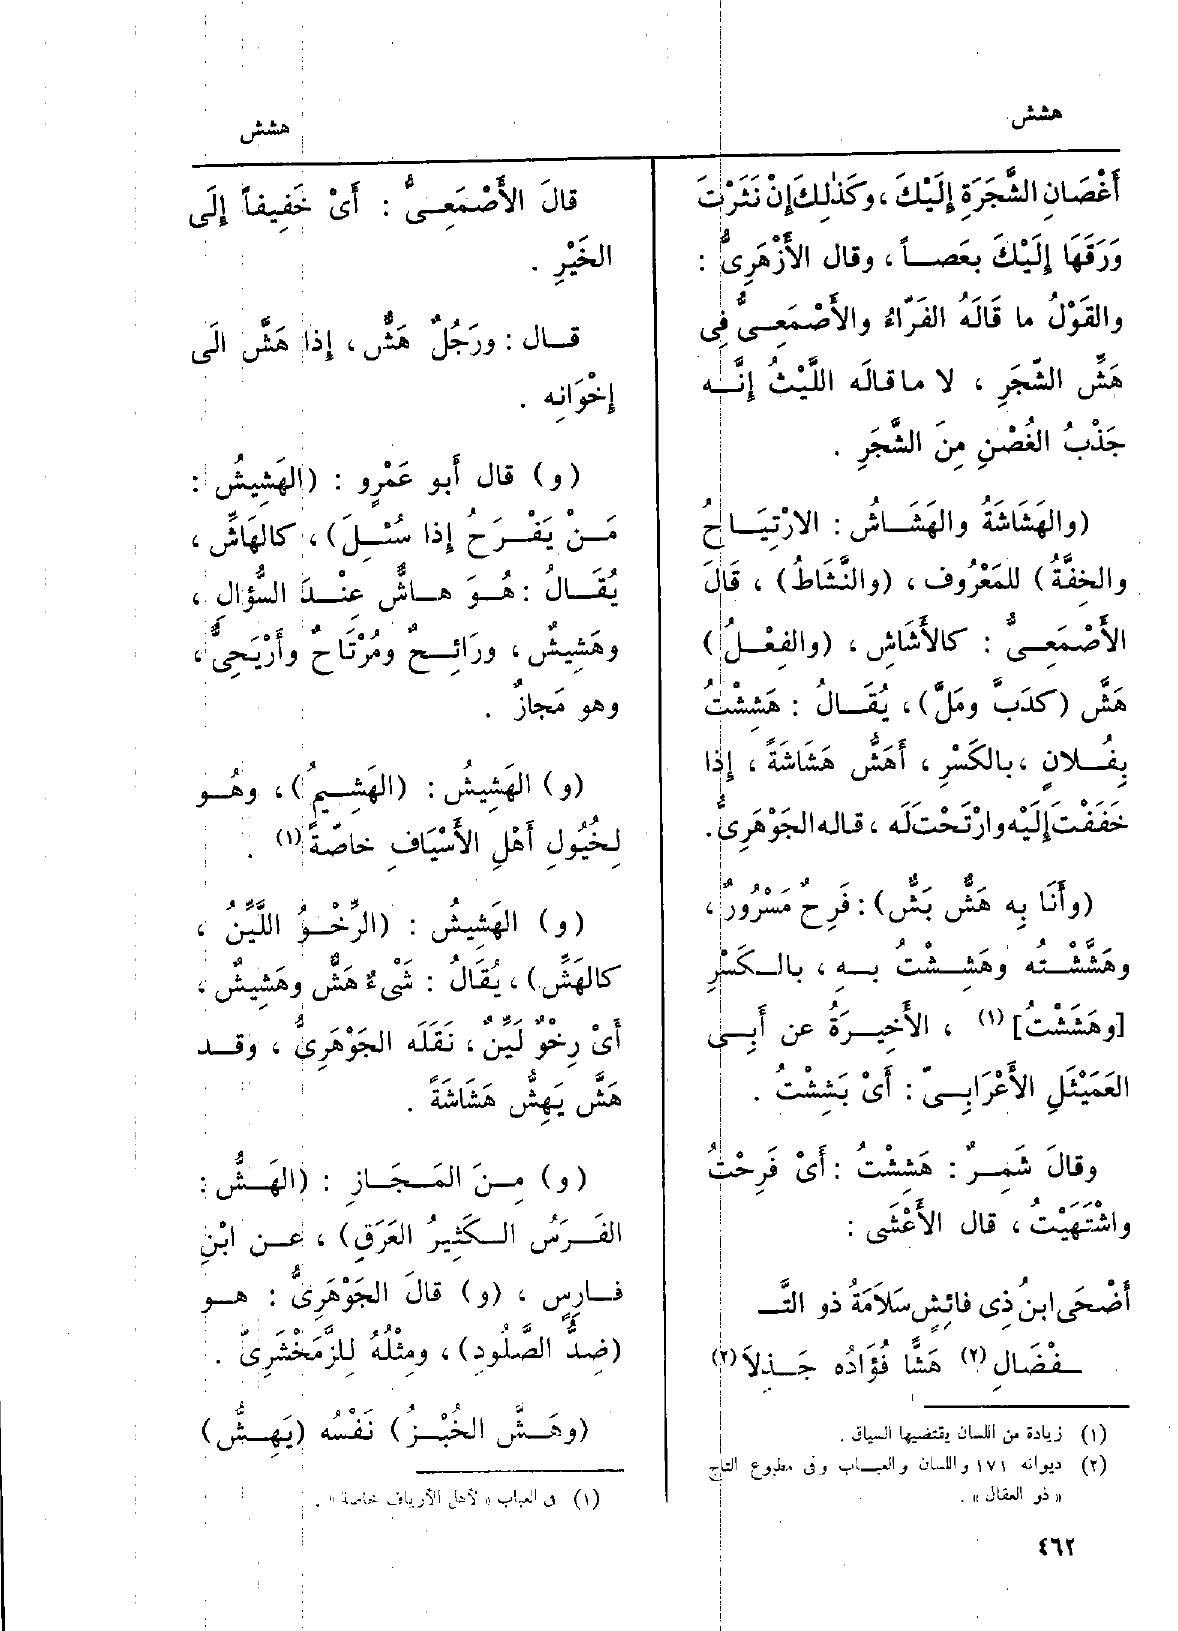 هشش
هشش
أَغْصَانِ الشَّجَرَةِ إِلَيْكَ ، وكَذٰلِكَ إِنْ نَثَرْتَ
وَرَقَهَا إِلَيْكَ بعَصــاً ، وقال الأَزْهَرِىُّ :
والقَوْلُ ما قالَهُ الفَرّاءُ والأَصْمَعِــىُّ فِى
هَشِّ الشّجَرِ ، لا ما قالَه اللَّيْثُ إِنَّــه
جَذْبُ الغُصْنِ مِنَ الشَّجَرِ .
(والهَشَاشَةُ والهَشَــاشُ : الارْتِيَــاحُ
والخِفَّةُ) للمَعْرُوف ، (والنَّشَاطُ) ، قَالَ
الأَصْمَعِــىُّ : كالأَشَاشِ ، (والفِعْــلُ)
هَشَّ (كدَبَّ ومَلَّ) ، يُقَــالُ : هَشِشْتُ
بِفُــلانٍ ، بالكَسْرِ ، أَهَشُّ هَشَاشَةً ، إِذا
خَفَفْتَ إِلَيْهِ وارْتَحْتَ لَه ، قاله الجَوْهَرِىُّ .
(وأَنَا بِه هَشٌّ بَشٌّ) : فَرِحٌ مَسْرُورٌ ،
وهَشَّشْــتُه وهَشِــشْتُ بــهِ ، بالــكَسْرِ
[وهَشَشْتُ] (١) ، الأَخِيــرَةُ عن أَبِــى
العَمَيْثَلِ الأَعْرَابِــىّ : أَىْ بَشِشْتُ .
وقالَ شَمِــرٌ : هَشِشْتُ : أَىْ فَرِحْتُ
واشْتَهَيْتُ ، قال الأَعْشَى :
أَضْحَى ابنُ ذِى فائِشٍ سَلاَمَةُ ذو التَّــ
ــفْضَالِ (٢) هَشًّا فُؤَادُه جَــذِلاَ (٢)
(١) زيادة من اللسان يقتضيها السياق .
(٢) ديوانه ١٧١ واللسان والعبــاب وفى مطبوع التاج
« ذو العقال » .
قالَ الأَصْمَعِــىُّ : أَىْ خَفِيفاً إِلَى
الخَيْرِ .
قــال : ورَجُلٌ هَشٌّ ، إِذا هَشَّ الَى
إِخْوَانِه .
(و) قال أَبو عَمْرٍو : (الهَشِيشُ :
مَــنْ يَفْــرَحُ إِذا سُئــلَ) ، كالهَاشِّ ،
يُقَــالُ : هُــوَ هــاشٌّ عِنْــدَ السُّؤالِ ،
وهَشِيشٌ ، ورَائِــحٌ ومُرْتَاحٌ وأَرْيَحِىٌّ ،
وهو مَجازٌ .
(و) الهَشِيشُ : (الهَشِــيمُ) ، وهُــو
لخُيُولِ أَهْلِ الأَسْيَافِ خاصّةً (١) .
(و) الهَشِيشُ : (الرِّخْــوُ اللَّيِّنُ ،
كالهَشِّ) ، يُقَالُ : شَىْءٌ هَشٌّ وهَشِيشٌ ،
أَىْ رِخْوٌ لَيِّنٌ ، نَقَلَه الجَوْهَرِىُّ ، وقــد
هَشَّ يَهِشُّ هَشَاشَةً .
(و) مِــنَ المَــجَــازِ : (الهَــشُّ :
الفَــرَسُ الــكَثِيرُ العَرَقِ) ، عــن ابْنِ
فــارِسٍ ، (و) قالَ الجَوْهَرِىُّ : هــو
(ضِدُّ الصَّلُودِ) ، ومِثْلُهُ لِلزَّمَخْشَرِىّ .
(وهَــشَّ الخُبْــزُ) نَفْسُه (يَهِــشُّ)
(١) فى العباب « لأهل الأرياف خاصة » .
٤٦٢